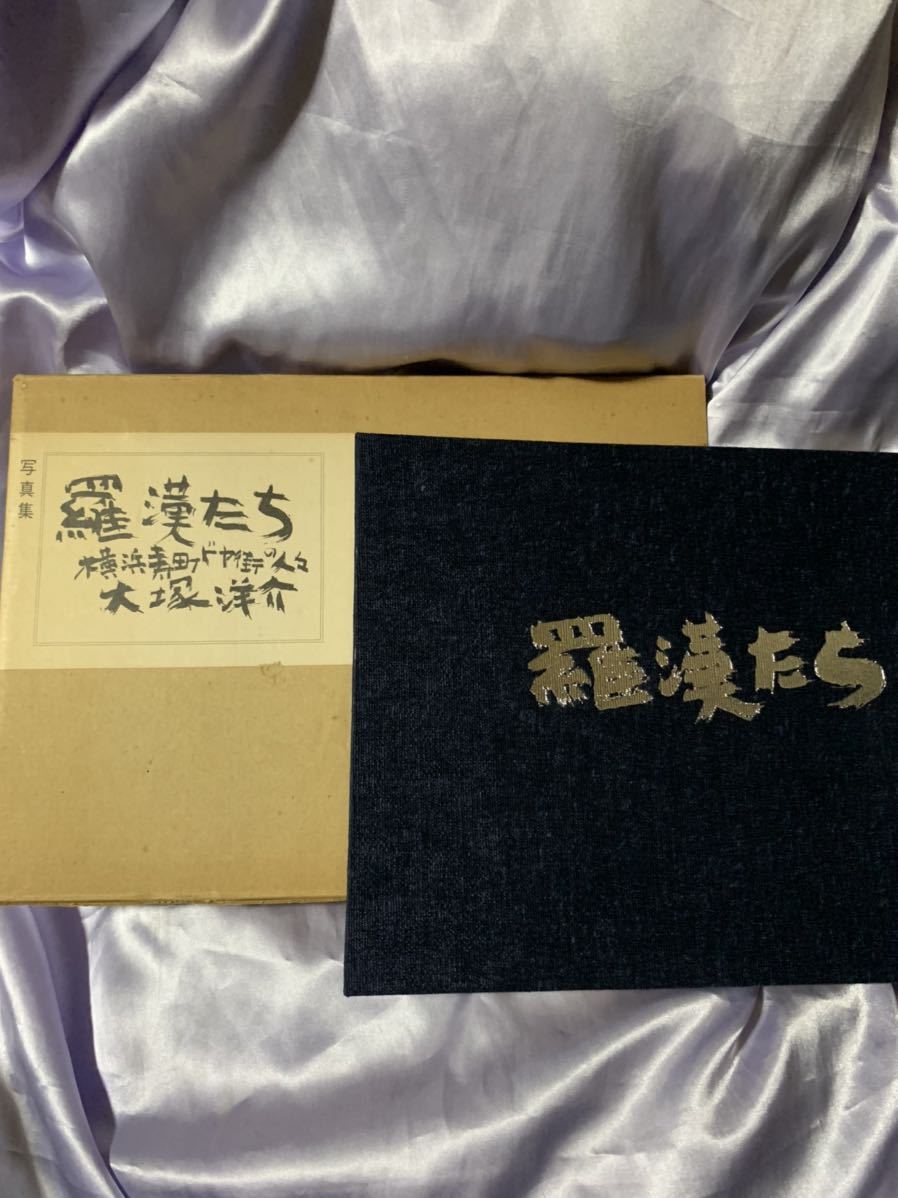 写真集
羅漢たち
横浜寿町ドヤ街の人々
大塚洋介
羅漢たち